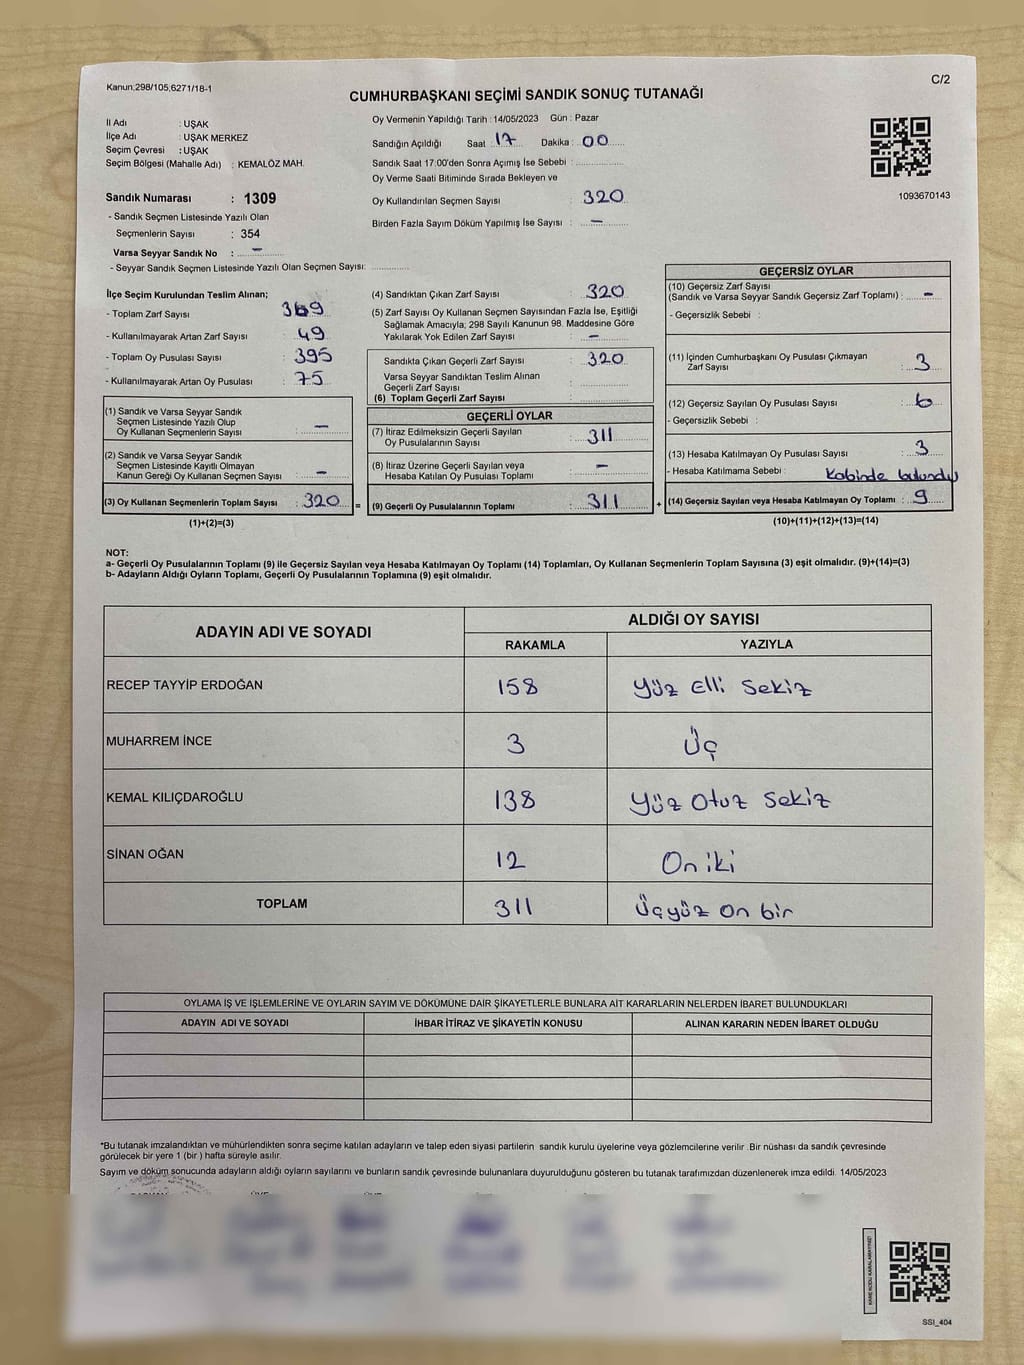 Kanun:298/105,6271/18-1
C/2
CUMHURBAŞKANI SEÇİMİ SANDIK SONUÇ TUTANAĞI
İl Adı : UŞAK
İlçe Adı : UŞAK MERKEZ
Seçim Çevresi : UŞAK
Seçim Bölgesi (Mahalle Adı) : KEMALÖZ MAH.
Sandık Numarası : 1309
- Sandık Seçmen Listesinde Yazılı Olan
Seçmenlerin Sayısı : 354
Varsa Seyyar Sandık No : –
- Seyyar Sandık Seçmen Listesinde Yazılı Olan Seçmen Sayısı: ............
Oy Vermenin Yapıldığı Tarih : 14/05/2023 Gün : Pazar
Sandığın Açıldığı Saat : 17 Dakika : 00
Sandık Saat 17:00'den Sonra Açılmış İse Sebebi : ............
Oy Verme Saati Bitiminde Sırada Bekleyen ve
Oy Kullandırılan Seçmen Sayısı : 320
Birden Fazla Sayım Döküm Yapılmış İse Sayısı : –
1093670143
İlçe Seçim Kurulundan Teslim Alınan;
- Toplam Zarf Sayısı : 369
- Kullanılmayarak Artan Zarf Sayısı : 49
- Toplam Oy Pusulası Sayısı : 395
- Kullanılmayarak Artan Oy Pusulası : 75
(1) Sandık ve Varsa Seyyar Sandık
Seçmen Listesinde Yazılı Olup
Oy Kullanan Seçmenlerin Sayısı : –
(2) Sandık ve Varsa Seyyar Sandık
Seçmen Listesinde Kayıtlı Olmayan
Kanun Gereği Oy Kullanan Seçmen Sayısı : –
(3) Oy Kullanan Seçmenlerin Toplam Sayısı : 320 =
(1)+(2)=(3)
(4) Sandıktan Çıkan Zarf Sayısı : 320
(5) Zarf Sayısı Oy Kullanan Seçmen Sayısından Fazla İse, Eşitliği
Sağlamak Amacıyla; 298 Sayılı Kanunun 98. Maddesine Göre
Yakılarak Yok Edilen Zarf Sayısı : –
Sandıkta Çıkan Geçerli Zarf Sayısı : 320
Varsa Seyyar Sandıktan Teslim Alınan
Geçerli Zarf Sayısı : ............
(6) Toplam Geçerli Zarf Sayısı : ............
GEÇERLİ OYLAR
(7) İtiraz Edilmeksizin Geçerli Sayılan
Oy Pusulalarının Sayısı : 311
(8) İtiraz Üzerine Geçerli Sayılan veya
Hesaba Katılan Oy Pusulası Toplamı : –
(9) Geçerli Oy Pusulalarının Toplamı : 311 +
GEÇERSİZ OYLAR
(10) Geçersiz Zarf Sayısı
(Sandık ve Varsa Seyyar Sandık Geçersiz Zarf Toplamı) : –
- Geçersizlik Sebebi :
(11) İçinden Cumhurbaşkanı Oy Pusulası Çıkmayan
Zarf Sayısı : 3
(12) Geçersiz Sayılan Oy Pusulası Sayısı : 6
- Geçersizlik Sebebi :
(13) Hesaba Katılmayan Oy Pusulası Sayısı : 3
- Hesaba Katılmama Sebebi : Kabinde bulundu
(14) Geçersiz Sayılan veya Hesaba Katılmayan Oy Toplamı : 9
(10)+(11)+(12)+(13)=(14)
NOT:
a- Geçerli Oy Pusulalarının Toplamı (9) ile Geçersiz Sayılan veya Hesaba Katılmayan Oy Toplamı (14) Toplamları, Oy Kullanan Seçmenlerin Toplam Sayısına (3) eşit olmalıdır. (9)+(14)=(3)
b- Adayların Aldığı Oyların Toplamı, Geçerli Oy Pusulalarının Toplamına (9) eşit olmalıdır.
ADAYIN ADI VE SOYADI ALDIĞI OY SAYISI
RAKAMLA YAZIYLA
RECEP TAYYİP ERDOĞAN 158 Yüz Elli Sekiz
MUHARREM İNCE 3 Üç
KEMAL KILIÇDAROĞLU 138 Yüz Otuz Sekiz
SİNAN OĞAN 12 On iki
TOPLAM 311 Üçyüz On bir
OYLAMA İŞ VE İŞLEMLERİNE VE OYLARIN SAYIM VE DÖKÜMÜNE DAİR ŞİKAYETLERLE BUNLARA AİT KARARLARIN NELERDEN İBARET BULUNDUKLARI
ADAYIN ADI VE SOYADI İHBAR İTİRAZ VE ŞİKAYETİN KONUSU ALINAN KARARIN NEDEN İBARET OLDUĞU
*Bu tutanak imzalandıktan ve mühürlendikten sonra seçime katılan adayların ve talep eden siyasi partilerin sandık kurulu üyelerine veya gözlemcilerine verilir. Bir nüshası da sandık çevresinde
görülecek bir yere 1 (bir ) hafta süreyle asılır.
Sayım ve döküm sonucunda adayların aldığı oyların sayılarını ve bunların sandık çevresinde bulunanlara duyurulduğunu gösteren bu tutanak tarafımızdan düzenlenerek imza edildi. 14/05/2023
KARE KODU KARALAMAYINIZ!
SSI_404